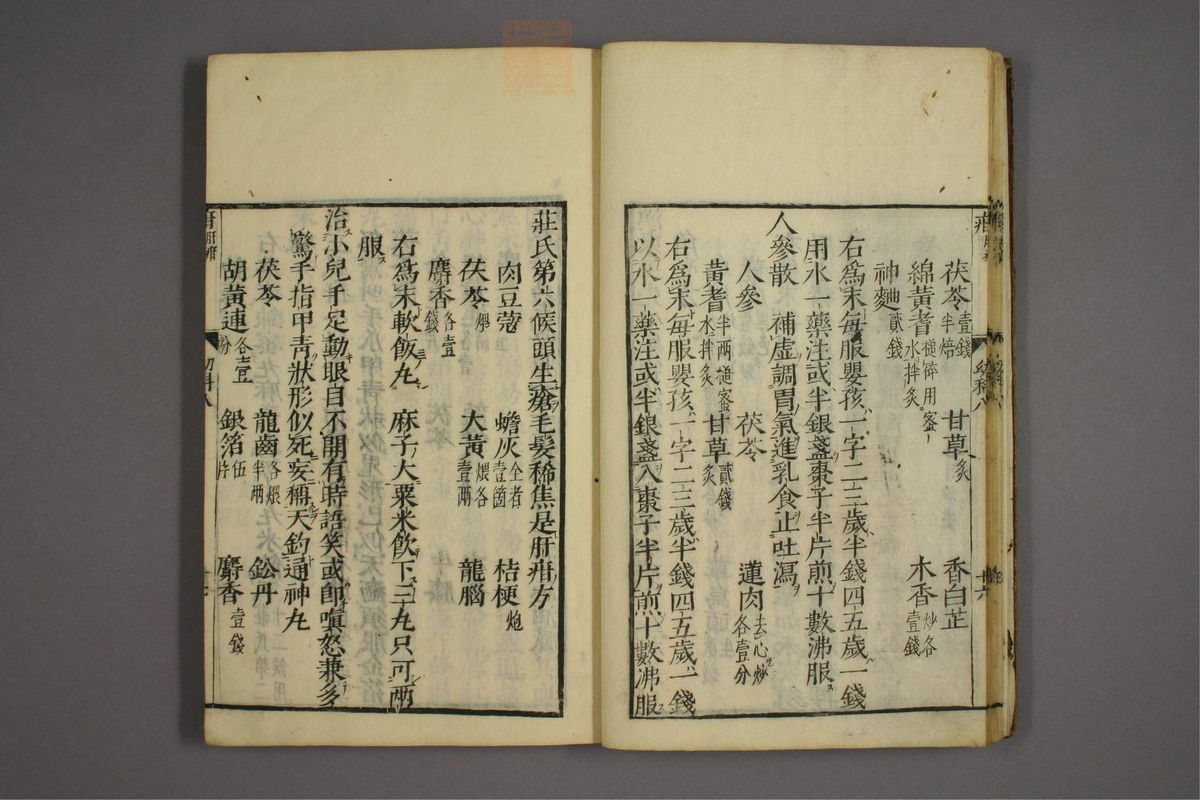 茯苓壹錢半焙　甘草炙　香白芷
綿黃耆槌碎用蜜水拌炙　木香炒各壹錢
神麯貳錢
右爲末每服嬰孩一字二三歲半錢四五歲一錢
用水一藥注或半銀盞棗子半片煎十數沸服
人參散　補虛調胃氣進乳食止吐瀉
人參　茯苓　蓮肉去心炒各壹分
黃耆半兩槌蜜水拌炙　甘草炙貳錢
右爲末每服嬰孩一字二三歲半錢四五歲一錢
以水一藥注或半銀盞入棗子半片煎十數沸服
莊氏第六候頭生瘡毛髮稀焦是肝疳方
肉豆蔻　蟾灰全者壹箇　桔梗炮
茯苓　大黃煨各壹兩　龍腦
麝香各壹錢
右爲末軟飯丸　麻子大粟米飲下三丸只可兩
服
治小兒手足動眼目不開有時語笑或卽嗔怒兼多
驚手指甲靑狀形似死妄稱天釣通神丸
茯苓　龍齒各煨半兩　鉛丹
胡黃連各壹分　銀箔伍片　麝香壹錢